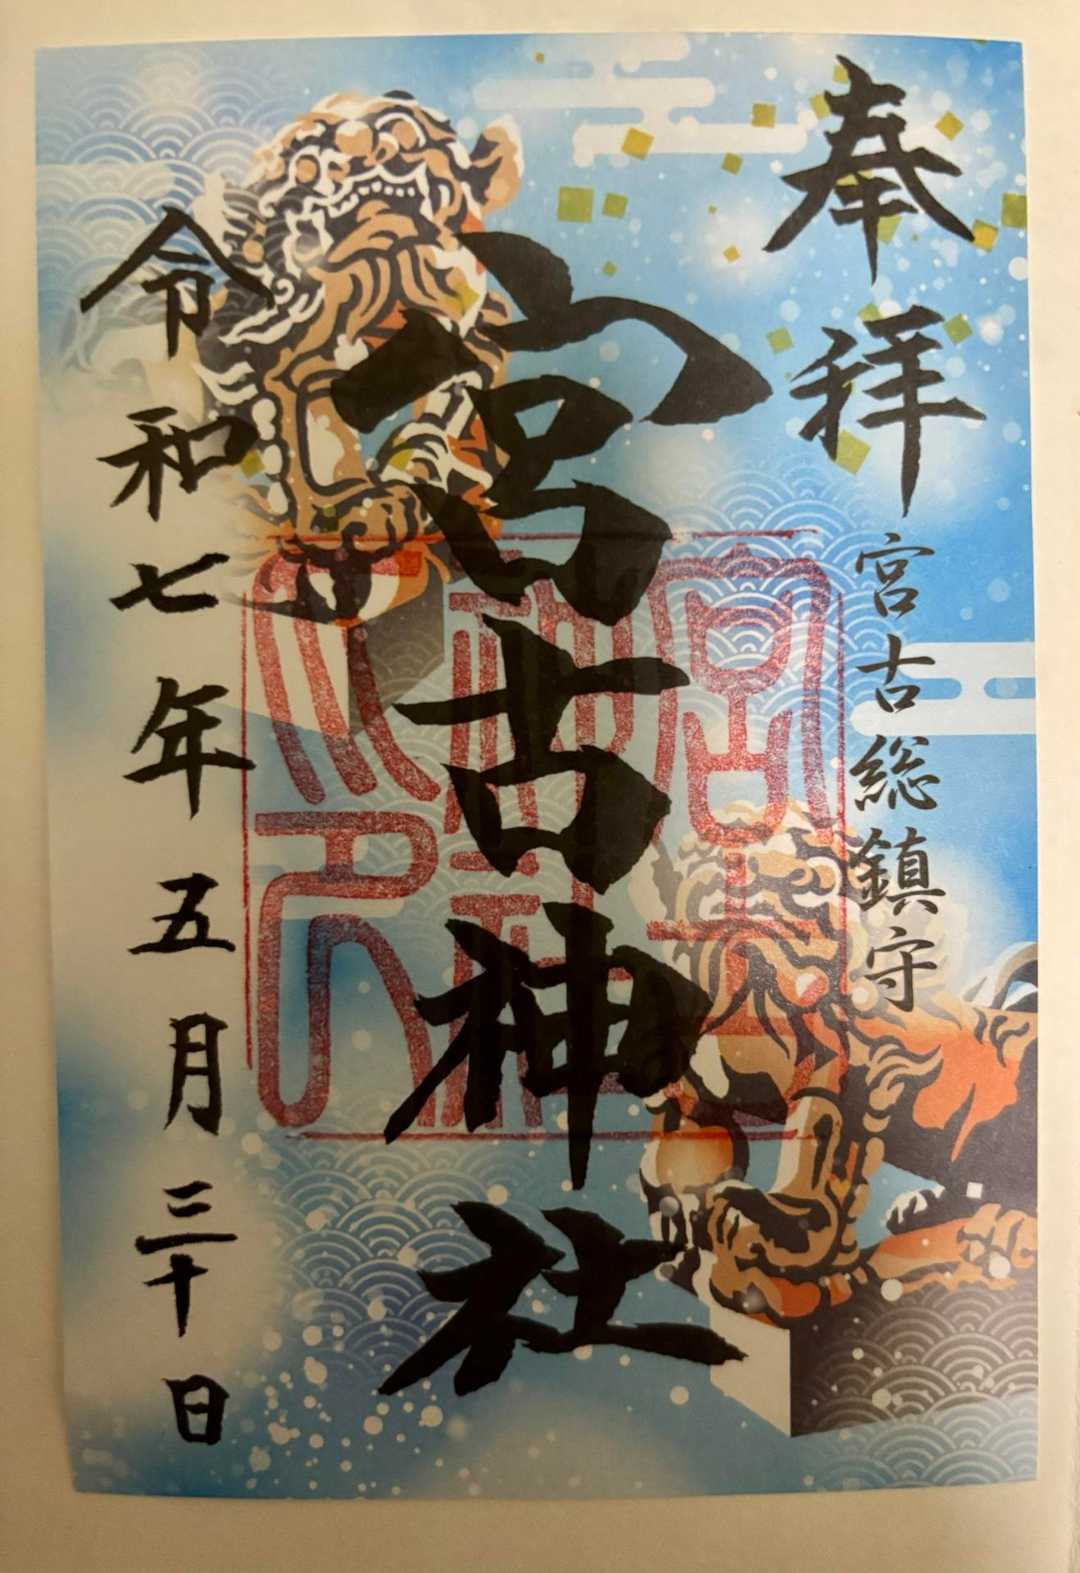 奉拝
宮古総鎮守
宮古神社
令和七年五月三十日